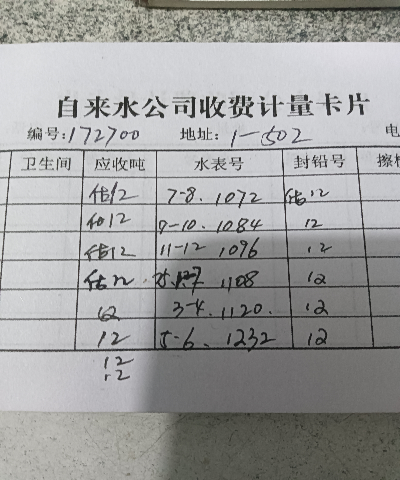 自来水公司收费计量卡片
编号:172700 地址: 1-502 电
卫生间 应收吨 水表号 封铅号 擦
估12 7-8. 1072 估12
估12 9-10. 1084 12
估12 11-12 1096 12
估12 1108 12
12 3-4. 1120. 12
12 5-6. 1232 12
12
12